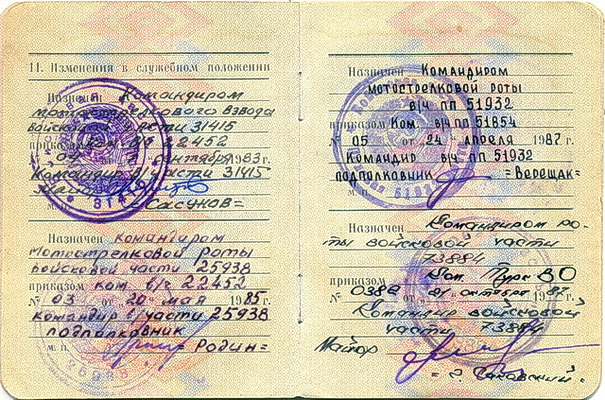 11. Изменения в служебном положении
Назначен Командиром
мотострелкового взвода
войсковой части 31415
приказом в/ч 22452
04 сентября 1983 г.
Командир в/части 31415
м. п. = Сасунов =
Назначен командиром
Мотострелковой роты
войсковой части 25938
приказом ком. в/ч 22452
№ 03 от 20 мая 1985 г.
командир в/части 25938
подполковник
м. п. = Родин =
Назначен Командиром
мотострелковой роты
в/ч пп 51932
приказом Ком. в/ч пп 51854
№ 05 от 24 апреля 1987 г.
Командир в/ч пп 51932
подполковник = Верещак =
Назначен Командиром ро-
ты войсковой части
73884
приказом Ком. ВО
№ 038 от 21 октября 1987 г.
Командир войсковой
части 73884
Майор